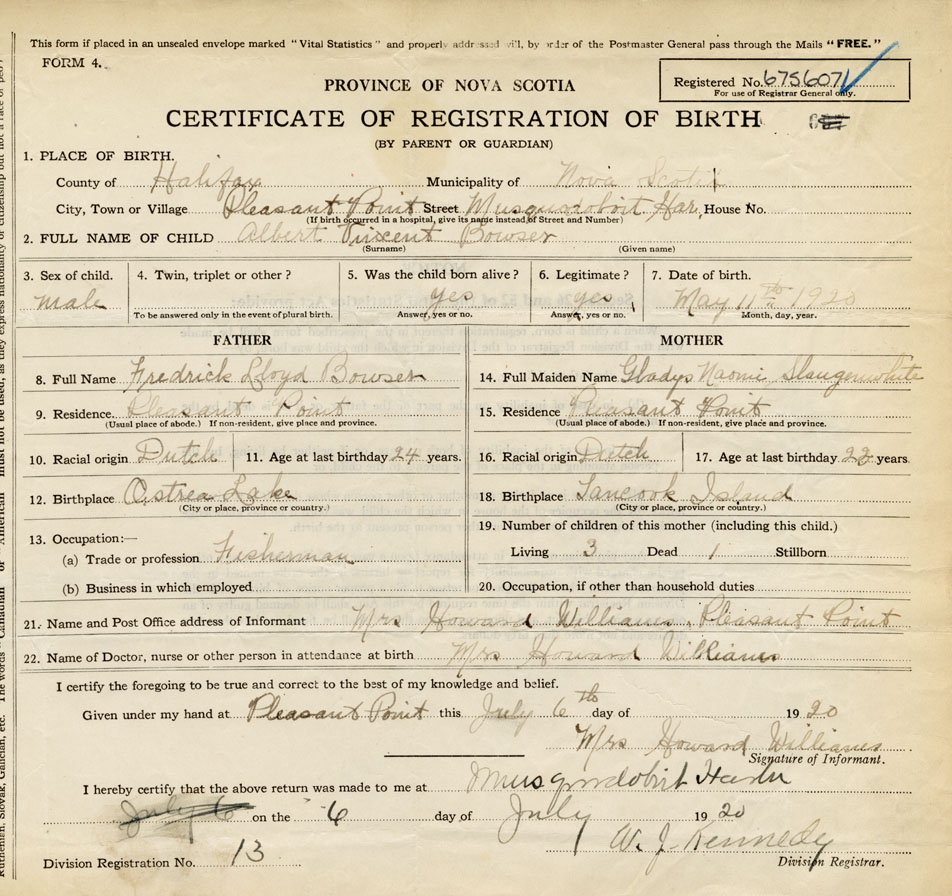 This form if placed in an unsealed envelope marked "Vital Statistics" and properly addressed will, by order of the Postmaster General pass through the Mails "FREE."
FORM 4.
Registered No. 675607
For use of Registrar General only.
PROVINCE OF NOVA SCOTIA
CERTIFICATE OF REGISTRATION OF BIRTH
(BY PARENT OR GUARDIAN)
1. PLACE OF BIRTH.
County of Halifax Municipality of Nova Scotia
City, Town or Village Pleasant Point Street Musquodoboit Har, House No.
(If birth occurred in a hospital, give its name instead of Street and Number
2. FULL NAME OF CHILD Albert Vincent Bowser
(Surname) (Given name)
3. Sex of child. 4. Twin, triplet or other? 5. Was the child born alive? 6. Legitimate? 7. Date of birth.
male yes yes May 11th 1920
To be answered only in the event of plural birth. Answer, yes or no. Answer, yes or no. Month, day, year.
FATHER MOTHER
8. Full Name Fredrick Lloyd Bowser 14. Full Maiden Name Gladys Naomi Slaugenwhite
9. Residence. Pleasant Point 15. Residence Pleasant Point
(Usual place of abode.) If non-resident, give place and province. (Usual place of abode.) If non-resident, give place and province.
10. Racial origin Dutch 11. Age at last birthday 24 years. 16. Racial origin Dutch 17. Age at last birthday years.
12. Birthplace Ostrea Lake 18. Birthplace Tancook Island
(City or place, province or country.) (City or place, province or country.)
13. Occupation:— 19. Number of children of this mother (including this child.)
(a) Trade or profession Fisherman Living 3 Dead 1 Stillborn
(b) Business in which employed 20. Occupation, if other than household duties
21. Name and Post Office address of Informant Mrs Howard Williams, Pleasant Point
22. Name of Doctor, nurse or other person in attendance at birth Mrs Howard Williams
I certify the foregoing to be true and correct to the best of my knowledge and belief.
Given under my hand at Pleasant Point this July 6th day of 1920
Mrs Howard Williams
Signature of Informant.
I hereby certify that the above return was made to me at Musquodoboit Harbr
July 6 on the 6 day of July 1920
W. J. Kennedy
Division Registration No. 13 Division Registrar.